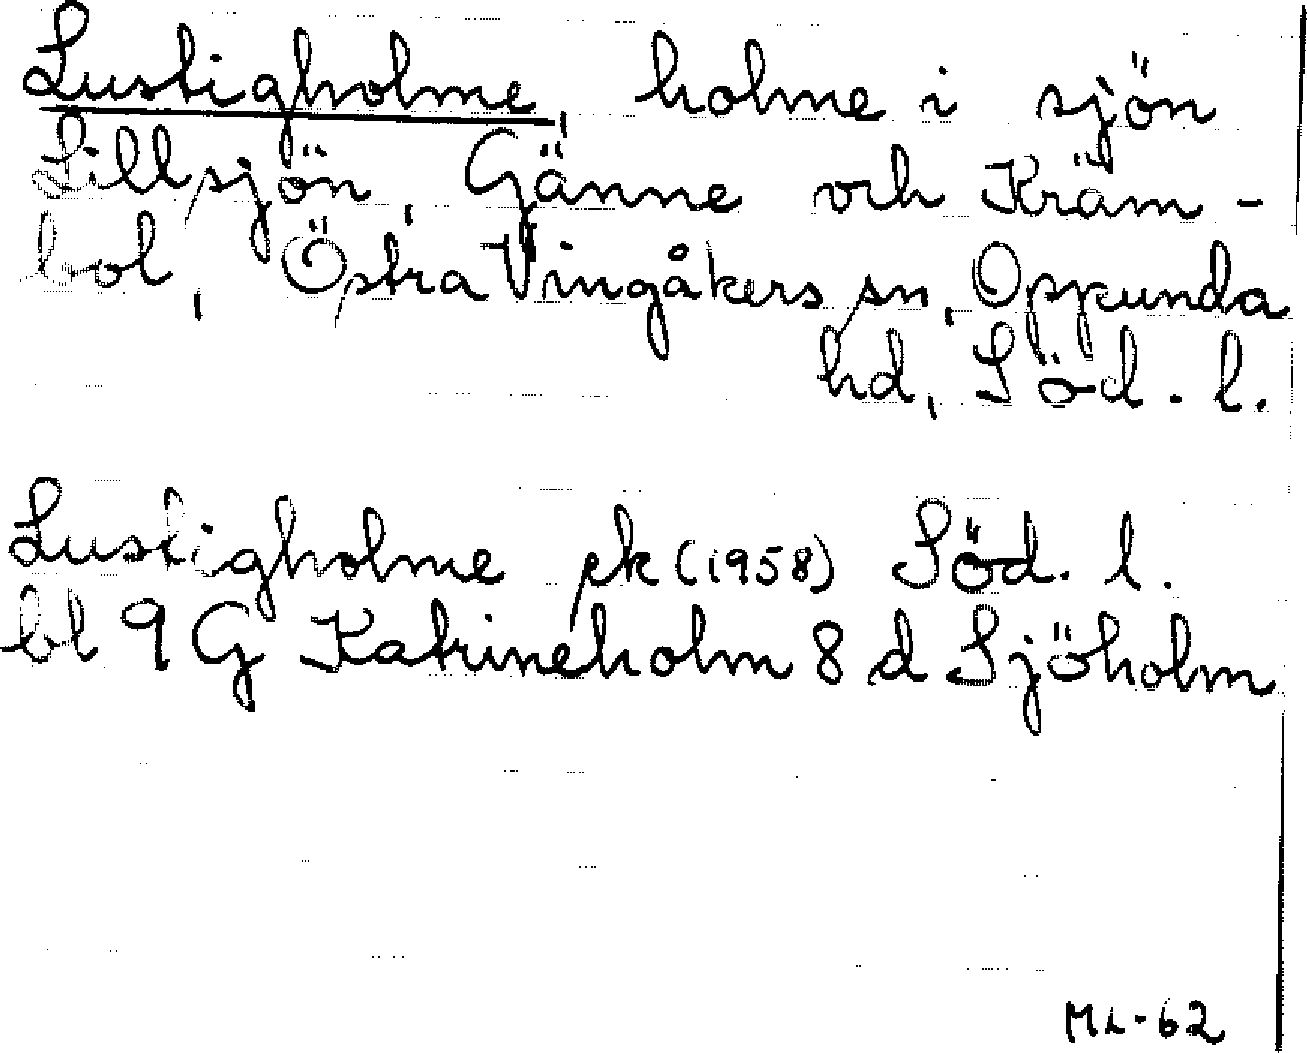 Lustigholme, holme i sjön
Lillsjön, Gänne och Kräm-
bol, Östra Vingåkers sn, Oppunda
hd, Söd. l.
Lustigholme ek (1958) Söd. l.
bl 9 G Katrineholm 8 d Sjöholm
ML-62